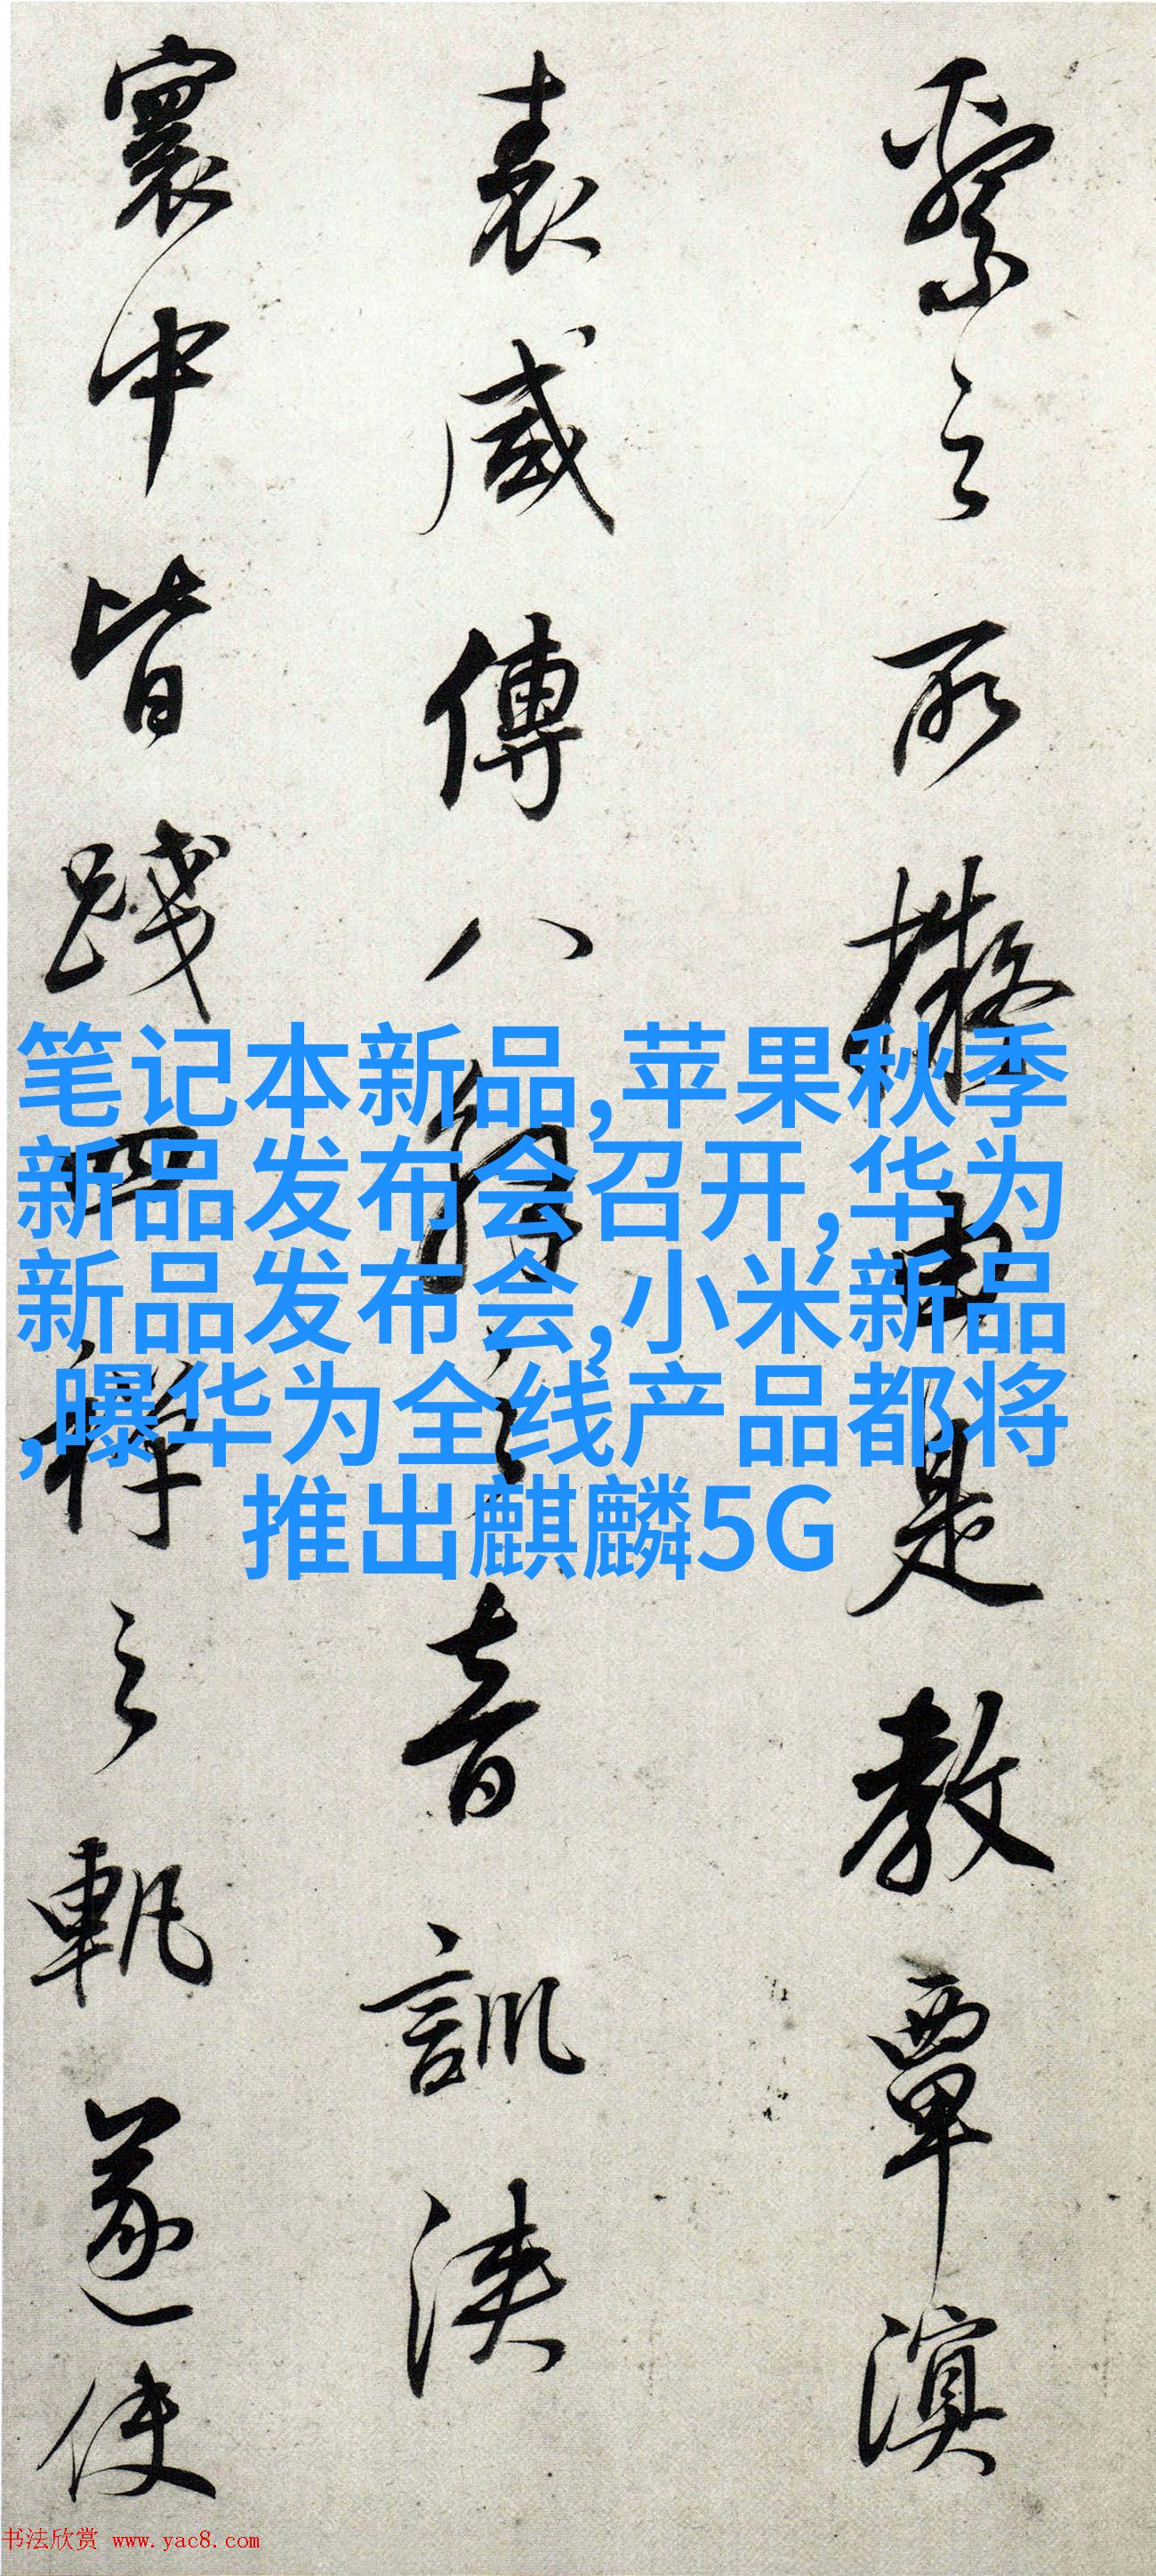 繫之所擬由是教覃溟
表咸傳八解之音訓浹
寰中皆踐四禪之軌遂使
笔记本新品,苹果秋季
新品发布会召开,华为
新品发布会,小米新品
,曝华为全线产品都将
推出麒麟5G
书法欣赏 www.yac8.com